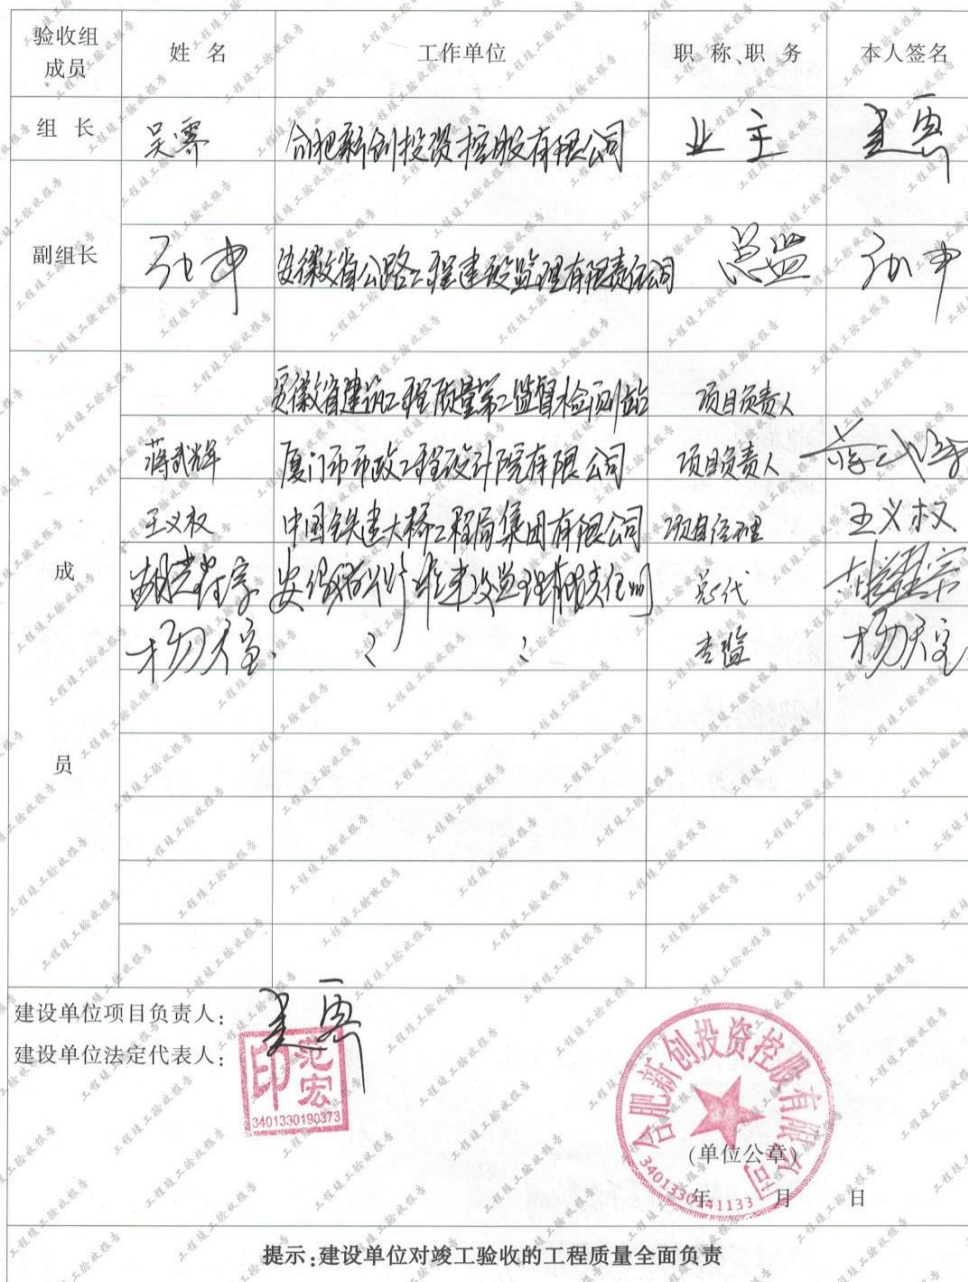 验收组成员 姓名 工作单位 职称、职务 本人签名
组长 吴霁 合肥新创投资控股有限公司 业主
副组长 孙中 安徽省公路工程建设监理有限责任公司 总监 孙中
安徽省建筑工程质量第二监督检测站 项目负责人
蒋武辉 厦门市市政工程设计院有限公司 项目负责人
王义权 中国铁建大桥工程局集团有限公司 项目经理 王义权
总代
专监
成员
建设单位项目负责人:
建设单位法定代表人:
范宏印
3401330190373
合肥新创投资控股有限公司
(单位公章)
3401330141133
年 月 日
提示:建设单位对竣工验收的工程质量全面负责
工程竣工验收报告